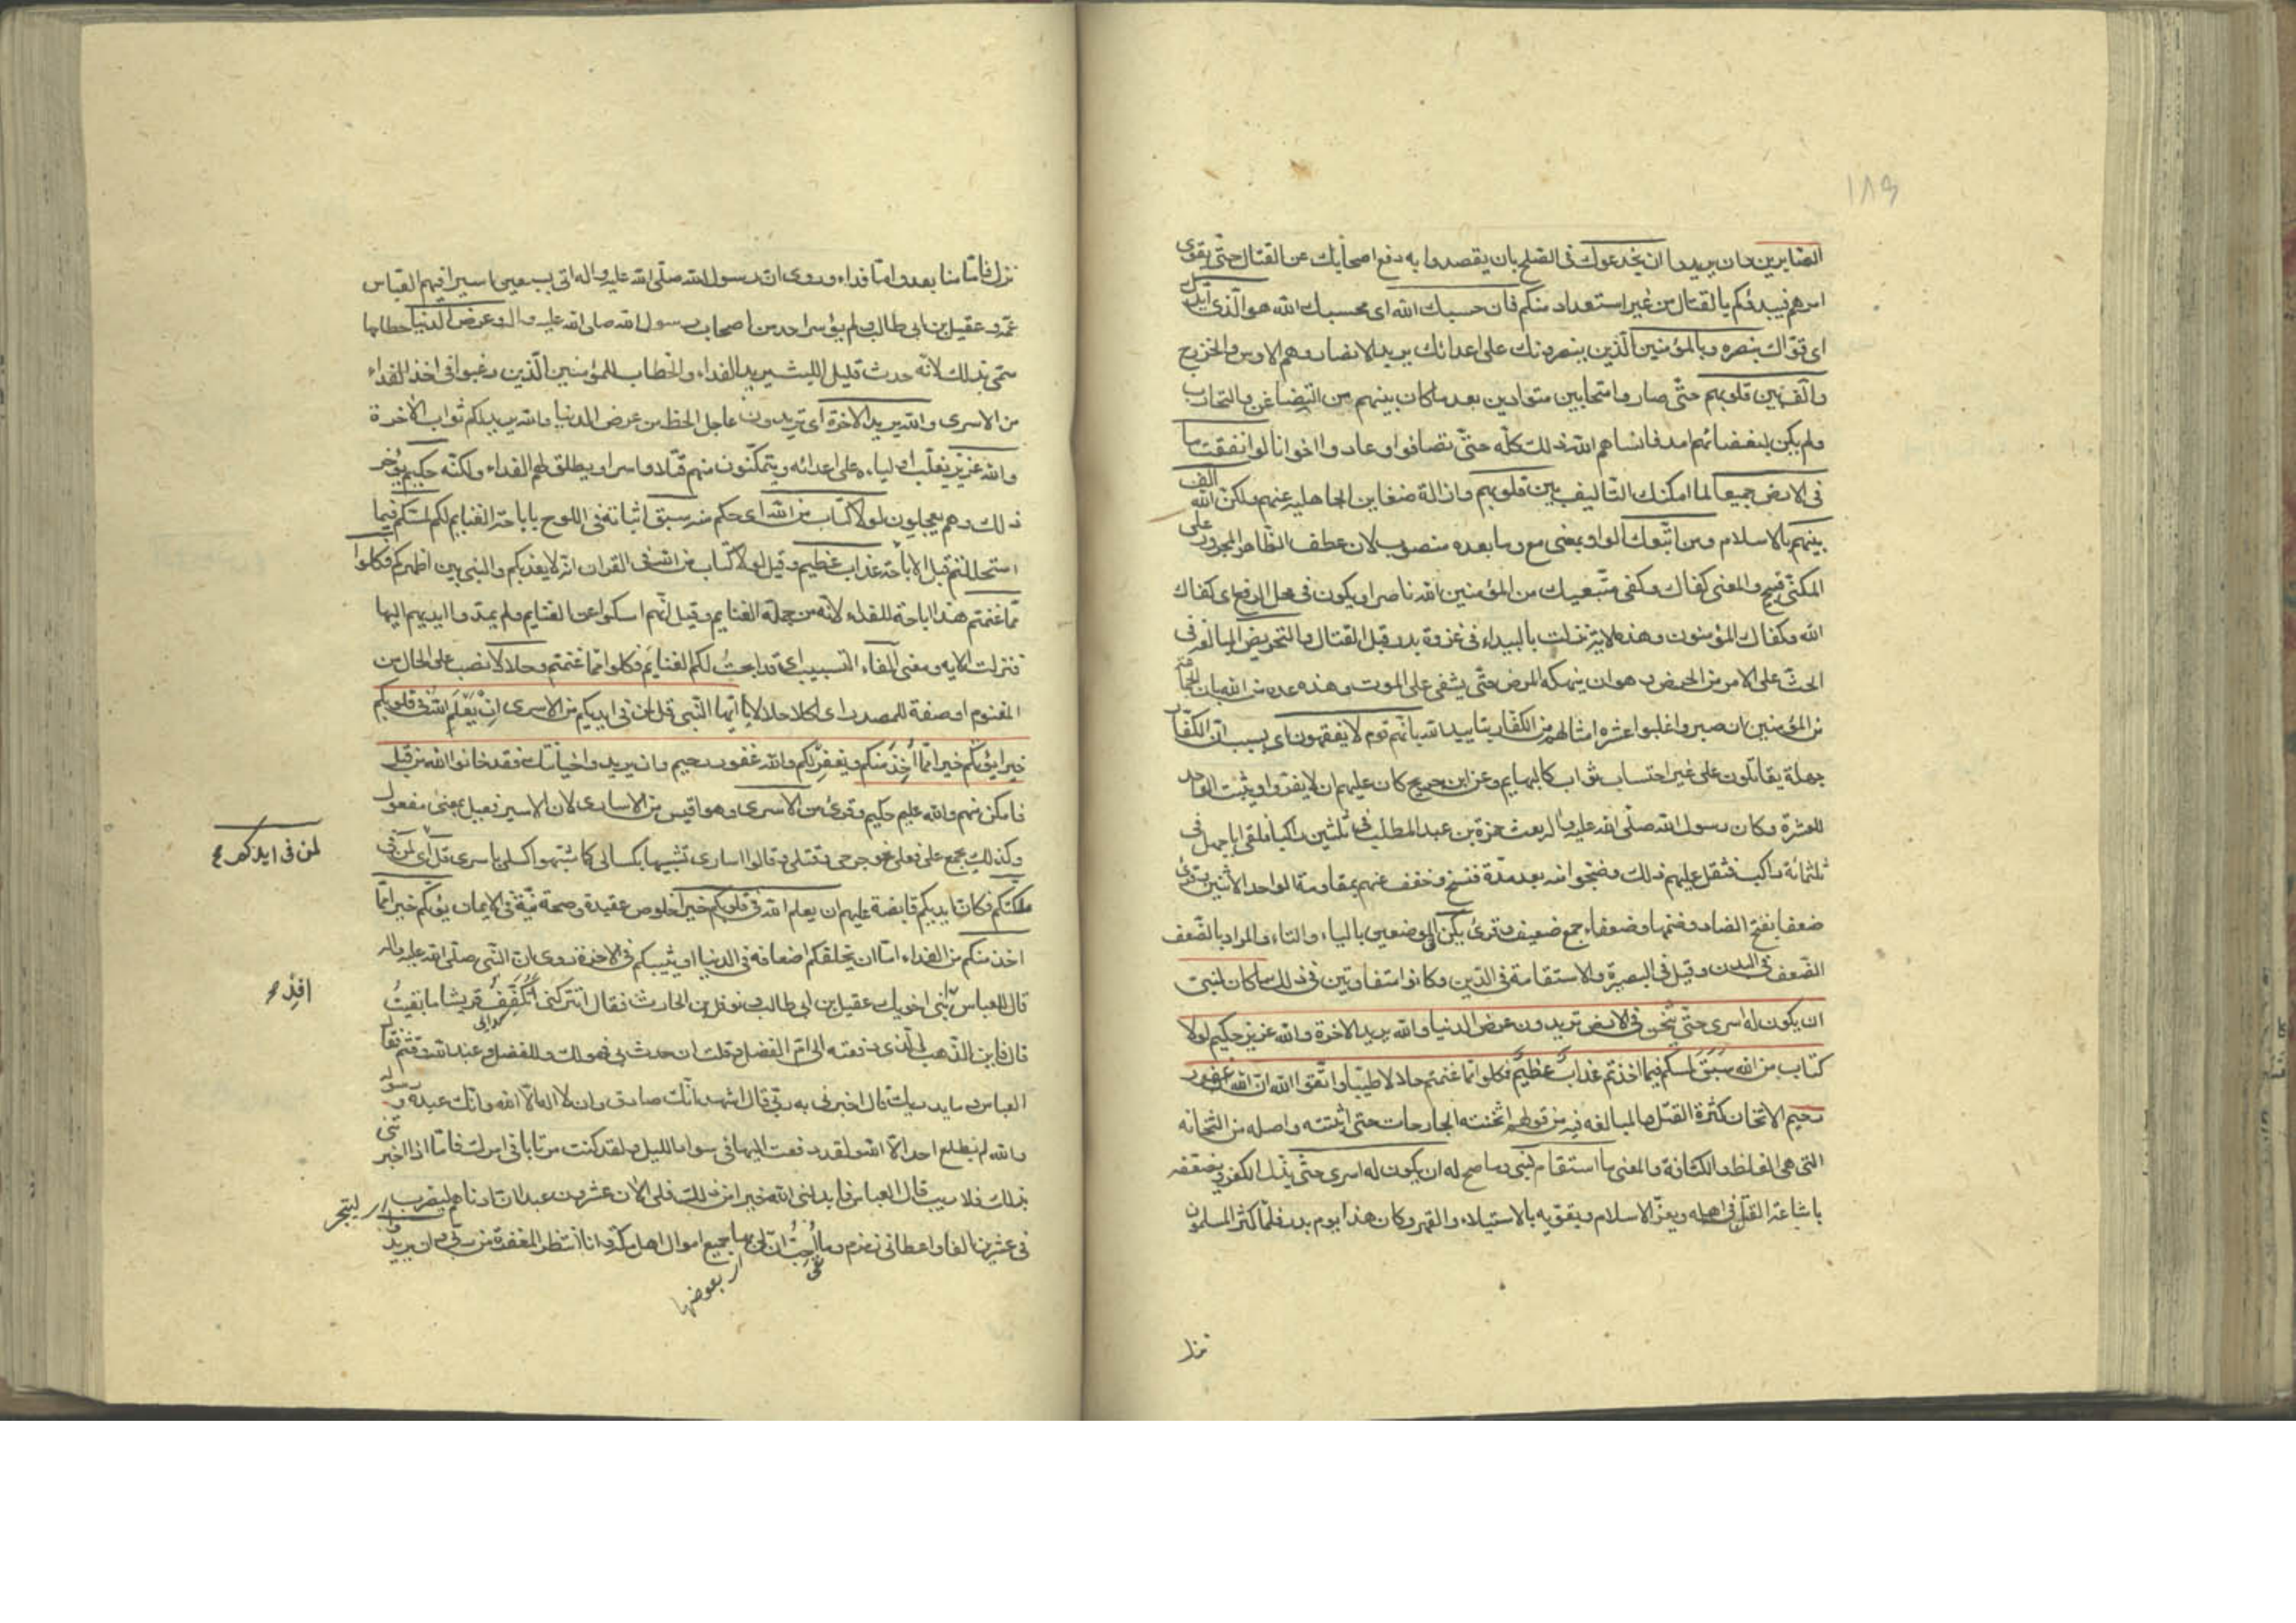 ١٨٩
الصّابرين وان يريدوا ان يخدعوك فى الصّلح بان يقصدوا به دفع اصحابك عن القتال حتّى يقوى
امرهم فيبدؤكم بالقتال من غير استعداد منكم فان حسبك الله اى محسبك الله هو الّذى ايّدك
اى قوّاك بنصره وبالمؤمنين الّذين ينصرونك على اعدائك يريد الانصار وهم الاوس والخزرج
والّف بين قلوبهم حتّى صاروا متحابين متوادين بعد ما كان بينهم من التضاغن والتحارب
ولم يكن لبغضائهم امد فانساهم الله ذلك كلّه حتّى تصافوا وعادوا اخوانا لو انفقت ما
فى الارض جميعا لما امكنك التاليف بين قلوبهم وازالة ضغاين الجاهلية عنهم ولكن الله الف
بينهم بالاسلام ومن اتّبعك الواو بمعنى مع وما بعده منصوب لان عطف الظاهر المجرور على
المكنّى قبيح والمعنى كفاك وكفى متّبعيك من المؤمنين الله ناصرا ويكون فى محل الرفع اى كفاك
الله وكفاك المؤمنون وهذه الاية نزلت بالبيداء فى غزوة بدر قبل القتال والتحريض المبالغة فى
الحثّ على الامر من الحرض وهو ان ينهكه المرض حتّى يشفى على الموت وهذه عدة من الله بان الجماعة
من المؤمنين ان صبروا غلبوا عشرة امثالهم من الكفّار بتاييد الله بانّهم قوم لا يفقهون اى بسبب ان الكفّار
جهلة يقاتلون على غير احتساب ثواب كالبهايم وعن ابن جريج كان عليهم ان لا يفرّوا ويثبت الواحد
للعشرة وكان رسول الله صلّى الله عليه واله بعث حمزة بن عبد المطلب فى ثلثين راكبا فلقى ابا جهل فى
ثلثمائة راكب فثقل عليهم ذلك وضجوا منه بعد مدّة فنسخ وخفف عنهم بمقاومة الواحد الاثنين وقرئ
ضعفا بفتح الضاد وضمها وضعفاء جمع ضعيف وقرئ يكن فى الموضعين بالياء والتاء والمراد بالضّعف
الضّعف فى البدن وقيل فى البصيرة والاستقامة فى الدّين وكانوا متفاوتين فى ذلك ما كان لنبىّ
ان يكون له اسرى حتّى يثخن فى الارض تريدون عرض الدنيا والله يريد الاخرة والله عزيز حكيم لولا
كتاب من الله سبق لمسكم فيما اخذتم عذاب عظيم فكلوا ممّا غنمتم حلالا طيّبا واتّقوا الله انّ الله غفور
رحيم الاثخان كثرة القتل والمبالغه فيه من قولهم اثخنته الجارحات حتى اثبتته واصله من الثخانه
التى هى الغلظ والكثافة والمعنى ما استقام لنبى وما صح له ان يكون له اسرى حتّى يذل الكفر ويضعفه
باشاعة القتل فى اهله ويعزّ الاسلام ويقويه بالاستيلاء والقهر وكان هذا يوم بدر فلمّا كثر المسلمون
نزل
نزل فامّا منا بعد وامّا فداء وروى ان رسول الله صلّى الله عليه واله اتى بسبعين اسيرا فيهم العبّاس
عمّه وعقيل بن ابى طالب ولم يؤسر احد من اصحاب رسول الله صلى الله عليه واله وعرض الدنيا حطامها
سمّى بذلك لانّه حدث قليل اللبث يريد الفداء والخطاب للمؤمنين الّذين رغبوا فى اخذ الفداء
من الاسرى والله يريد الاخرة اى تريدون عاجل الحظ من عرض الدنيا والله يريد لكم ثواب الاخرة
والله عزيز يغلّب اولياءه على اعدائه ويتمكّنون منهم قتلا واسرا ويطلق لهم الفداء ولكنّه حكيم يؤخر
ذلك وهم يعجلون لولا كتاب من الله اى حكم منه سبق اثباته فى اللوح باباحة الغنايم لكم لمسّكم فيما
استحللتم قبل الاباحة عذاب عظيم وقيل لولا كتاب من الله فى القران انّه لا يعذبكم والنبى بين اظهركم فكلوا
ممّا غنمتم هذا اباحة للفداء لانّه من جملة الغنايم وقيل انّهم امسكوا عن الغنايم ولم يمدّوا ايديهم اليها
فنزلت الايه ومعنى الفاء التسبيب اى قد ابحتُ لكم الغنايم فكلوا ممّا غنمتم وحلالا نصب على الحال من
المغنوم او صفة للمصدر اى اكلا حلالا يا ايّها النّبى قل لمن فى ايديكم من الاسرى ان يعلم الله فى قلوبكم
خيرا يؤتكم خيرا ممّا اُخِذ منكم ويغفر لكم والله غفور رحيم وان يريدوا خيانتك فقد خانوا الله من قبل
فامكن منهم والله عليم حكيم وقرئ من الاسرى وهو اقيس من الاسارى لان الاسير فعيل بمعنى مفعول
وكذلك يجمع على فعلى نحو جرحى وقتلى وقالوا اسارى تشبيها بكسالى كما شبّهوا كسلى باسرى قل اى لمن فى
ملكتكم فكان ايديكم قابضة عليهم ان يعلم الله فى قلوبكم خيرا خلوص عقيدة وصحة نيّة فى الايمان يؤتكم خيرا ممّا
اخذ منكم من الفداء امّا ان يخلفكم اضعافه فى الدنيا او يثيبكم فى الاخرة روى انّ النّبى صلّى الله عليه واله
قال للعباس ابنى اخويك عقيل بن ابى طالب ونوفل بن الحارث فقال اتتركنى اتكفّفُ قريشا ما بقيتُ
قال فاين الذّهب الّذى دفعته الى امّ الفضل وقلت ان حدث بى فهو لك وللفضل وعبد الله وقثم فقال
العباس وما يدريك قال اخبرنى به ربّى قال اشهد انّك صادق وان لا اله الا الله وانّك عبده ورسوله
والله لم يطلع احد الا الله ولقد دفعت اليها فى سواد الليل ولقد كنت مرتابا فى امرك فامّا اذا اخبرتنى
بذلك فلا ريب قال العباس فابدلنى الله خيرا من ذلك فلى الان عشرون عبدا ان ادناهم ليضرب
فى عشرين الفا واعطانى زمزم وما اُحِبُّ ان لى بها جميع اموال اهل مكة وانا انتظر المغفرة من ربّى وان يريدوا
لمن فى ايديكم
افدِ
ليتجر
بعوضها